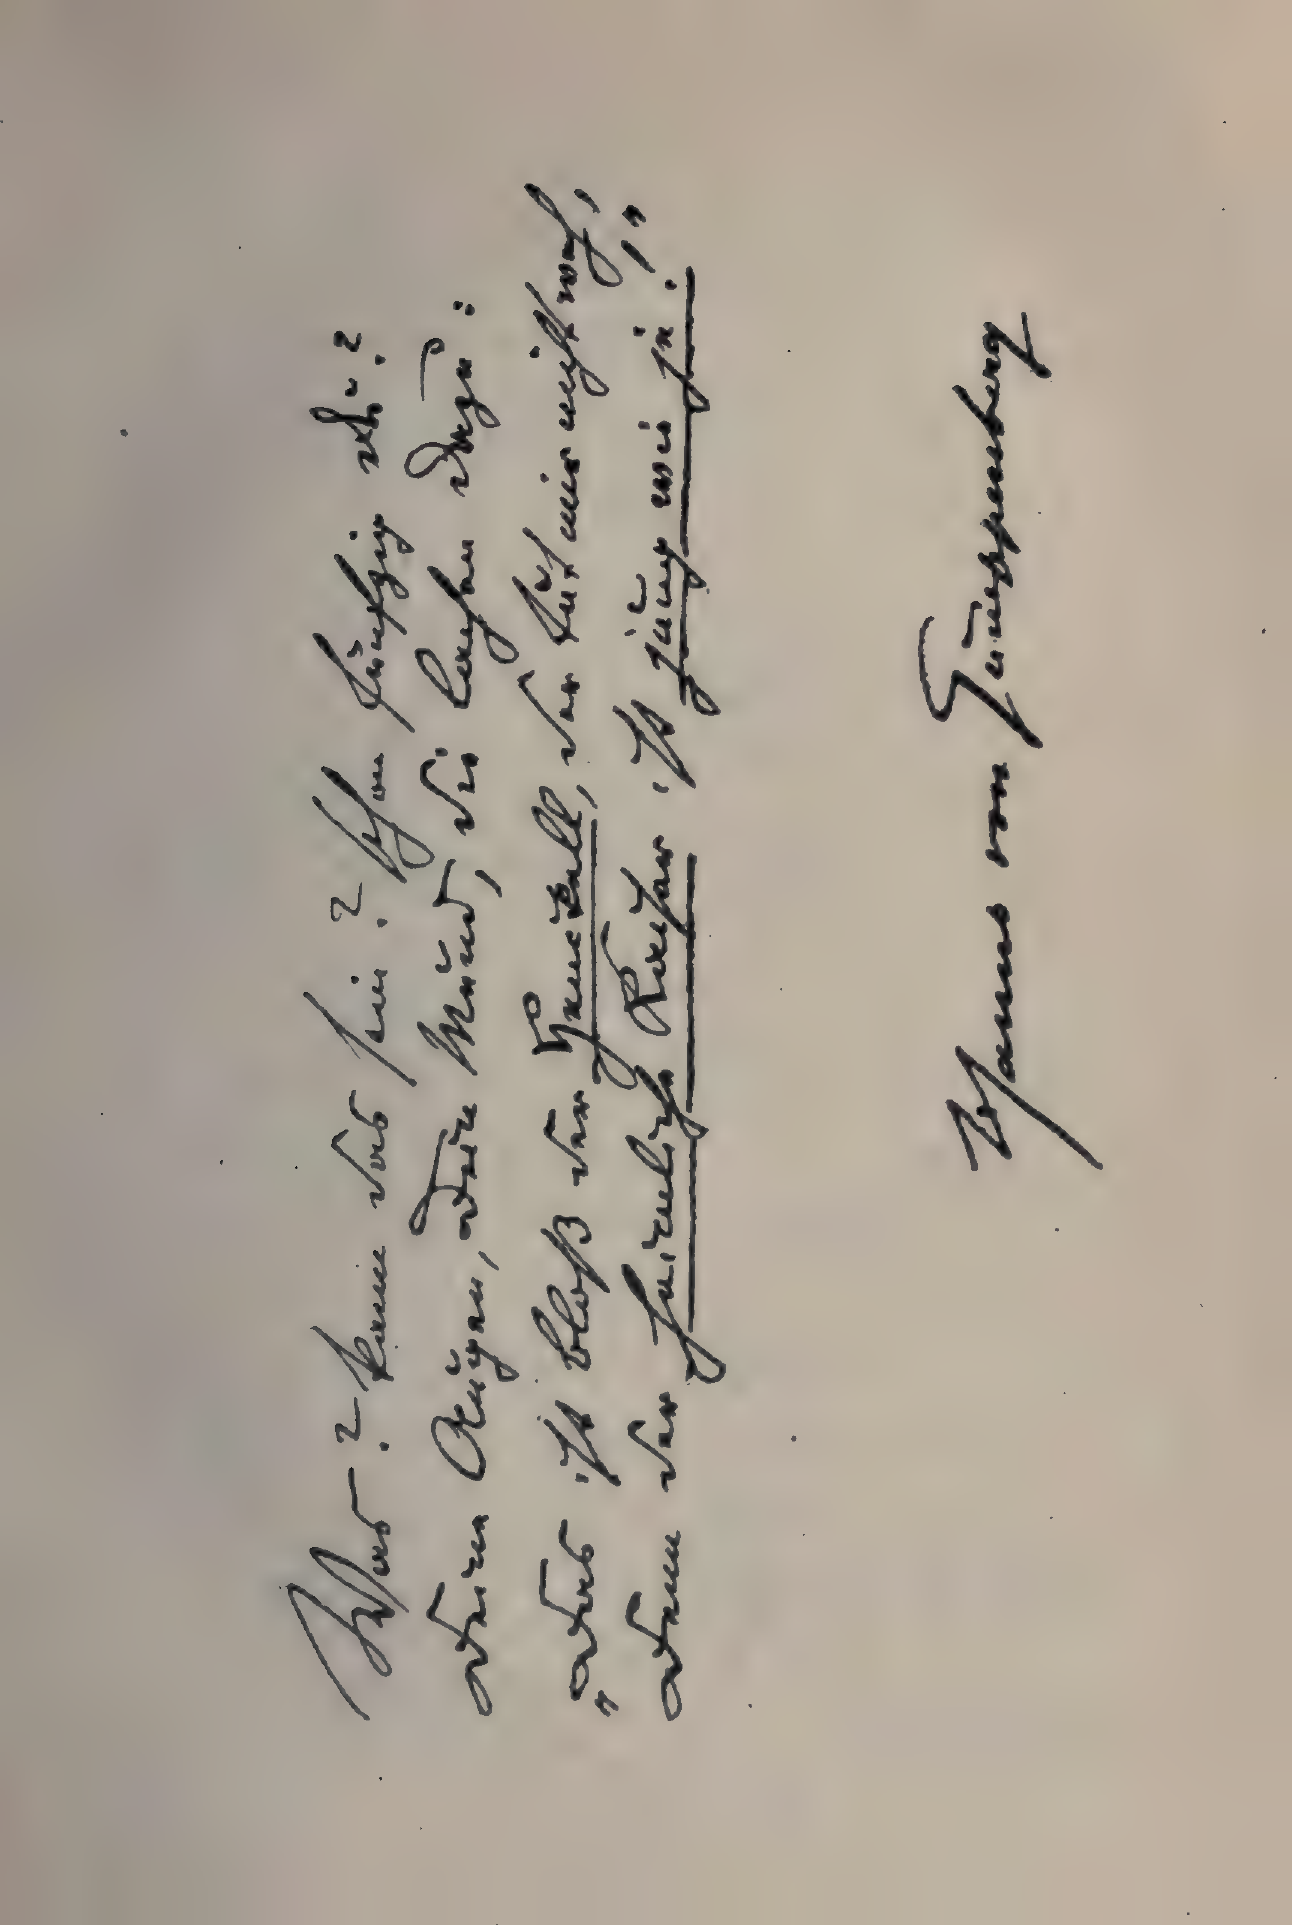 Was? kann das sein? schon fünfzig Du?
Dein Augen, Dein Mund, die lachen dazu:
„Das ist bloß der Henckell, der tut mir nicht weh,
Denn der heimliche ist jung wie je.“
Hanns von Gumppenberg